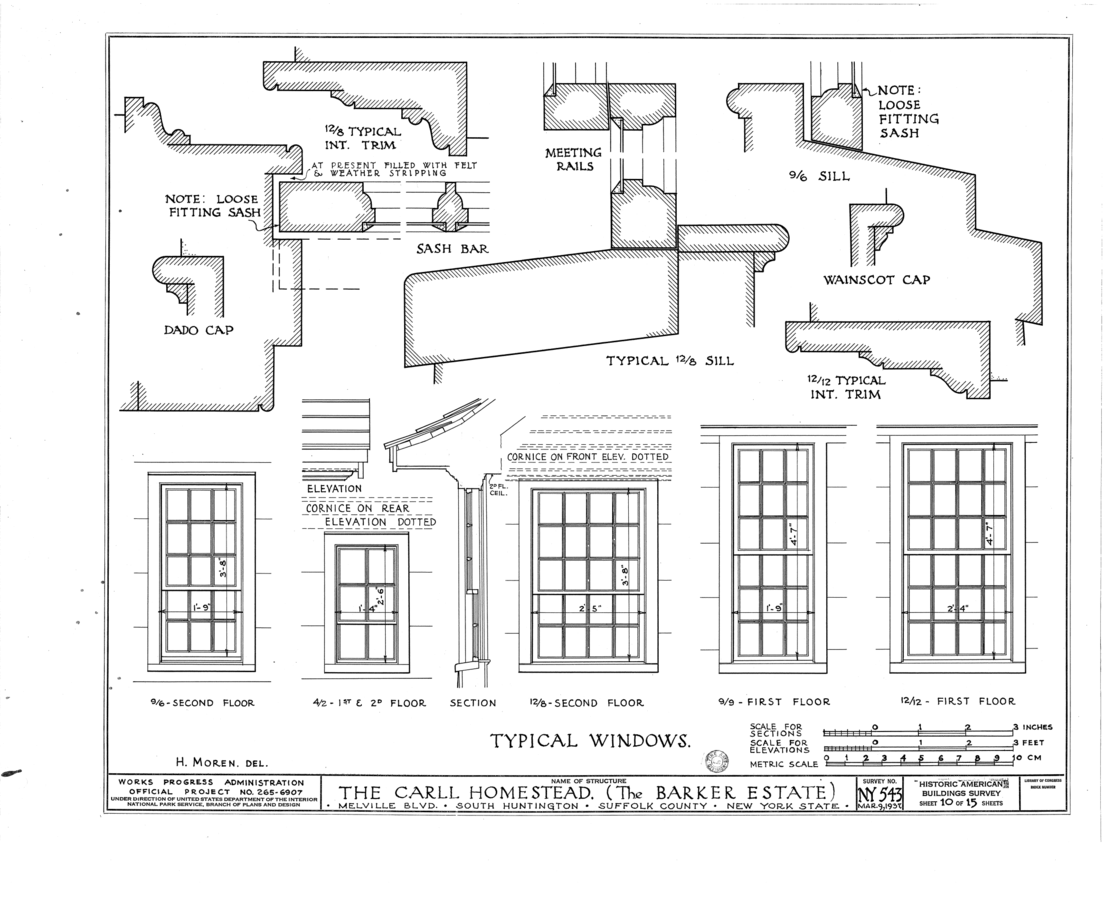 12/8 TYPICAL
INT. TRIM
AT PRESENT FILLED WITH FELT
& WEATHER STRIPPING
NOTE: LOOSE
FITTING SASH
SASH BAR
DADO CAP
MEETING
RAILS
NOTE:
LOOSE
FITTING
SASH
9/6 SILL
WAINSCOT CAP
TYPICAL 12/8 SILL
12/12 TYPICAL
INT. TRIM
ELEVATION
CORNICE ON REAR
ELEVATION DOTTED
CORNICE ON FRONT ELEV. DOTTED
2D FL.
CEIL.
3'-8"
1'-9"
2'-6"
1'-4"
3'-8"
2'-5"
4'-7"
1'-9"
4'-7"
2'-4"
9/6-SECOND FLOOR
4/2-1ST & 2D FLOOR
SECTION
12/8-SECOND FLOOR
9/9-FIRST FLOOR
12/12-FIRST FLOOR
TYPICAL WINDOWS.
SCALE FOR
SECTIONS
0 1 2 3 INCHES
SCALE FOR
ELEVATIONS
0 1 2 3 FEET
METRIC SCALE
0 1 2 3 4 5 6 7 8 9 10 CM
H. MOREN. DEL.
WORKS PROGRESS ADMINISTRATION
OFFICIAL PROJECT NO. 265-6907
UNDER DIRECTION OF UNITED STATES DEPARTMENT OF THE INTERIOR
NATIONAL PARK SERVICE, BRANCH OF PLANS AND DESIGN
NAME OF STRUCTURE
THE CARLL HOMESTEAD. (THE BARKER ESTATE)
• MELVILLE BLVD. • SOUTH HUNTINGTON • SUFFOLK COUNTY • NEW YORK STATE •
SURVEY NO.
NY 543
MAR. 9, 1937
HISTORIC AMERICAN
BUILDINGS SURVEY
SHEET 10 OF 15 SHEETS
LIBRARY OF CONGRESS
INDEX NUMBER